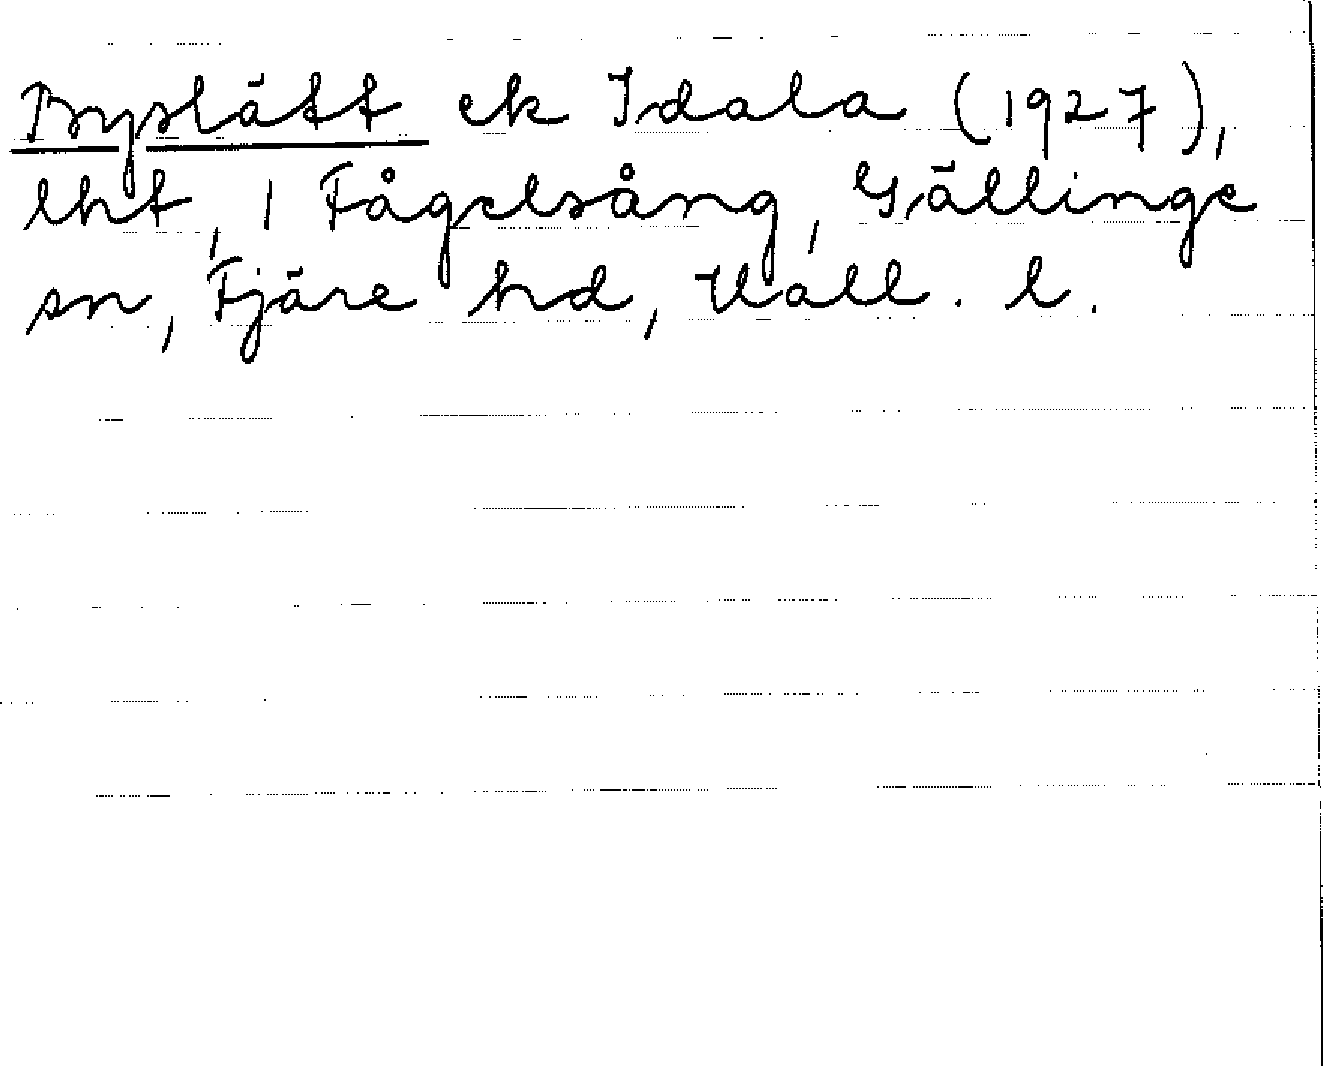 Byslätt ek Idala (1927),
lht, 1 Fågelsång, Gällinge
sn, Fjäre hd, Hall. l.